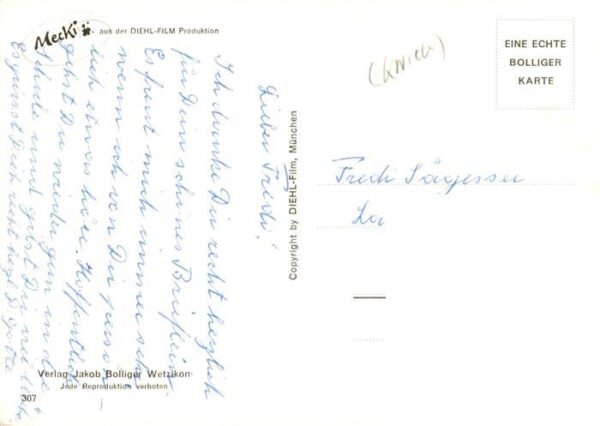 Mecki aus der DIEHL-FILM Produktion
EINE ECHTE
BOLLIGER
KARTE
Lieber Fredi!
Ich danke Dir recht herzlich
für Dein schönes Brieflein.
Es freut mich immer sehr
wenn ich von Dir persön-
lich etwas höre. Hoffentlich
gehst Du wieder gern in die
Schule und gibst Dir viel Mühe
Es grüsst Dich recht herzl. D. Gotte
Fredi Sägesser
Copyright by DIEHL-Film, München
Verlag Jakob Bolliger Wetzikon
Jede Reproduktion verboten
307